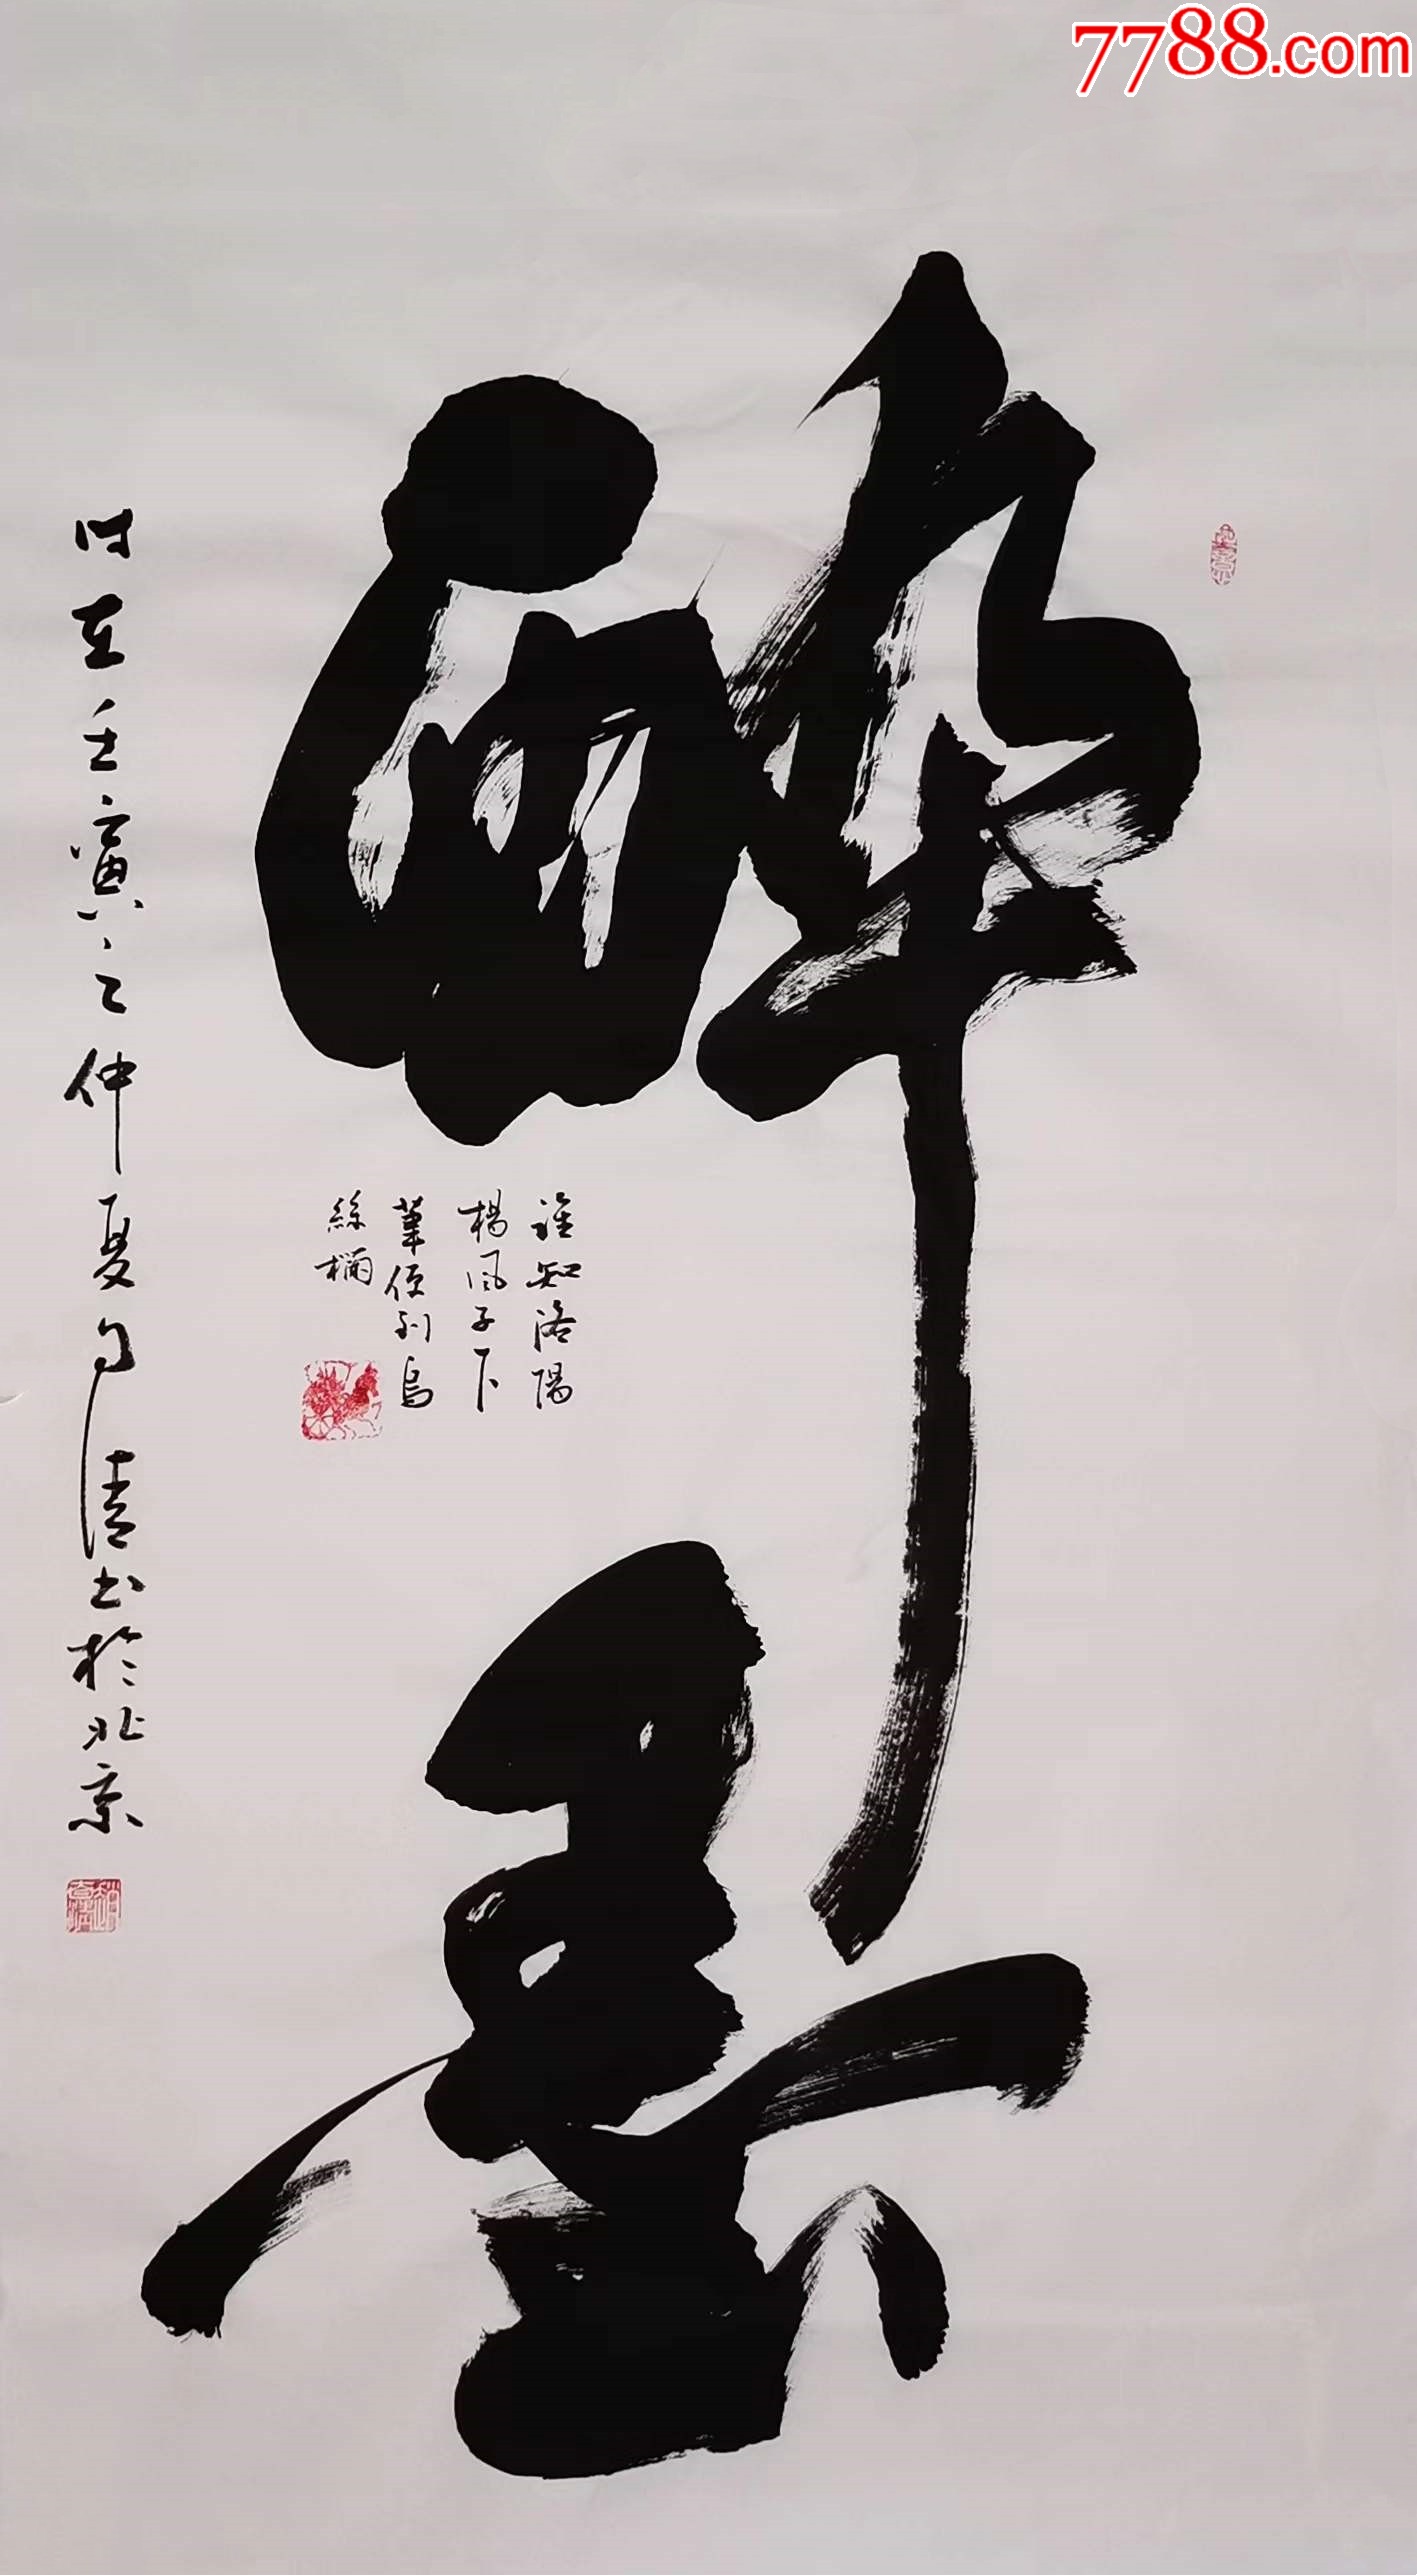 7788.com
醉墨
誰知洛陽
楊風子下
筆便到烏
絲欄
时在壬寅之仲夏
清书於北京